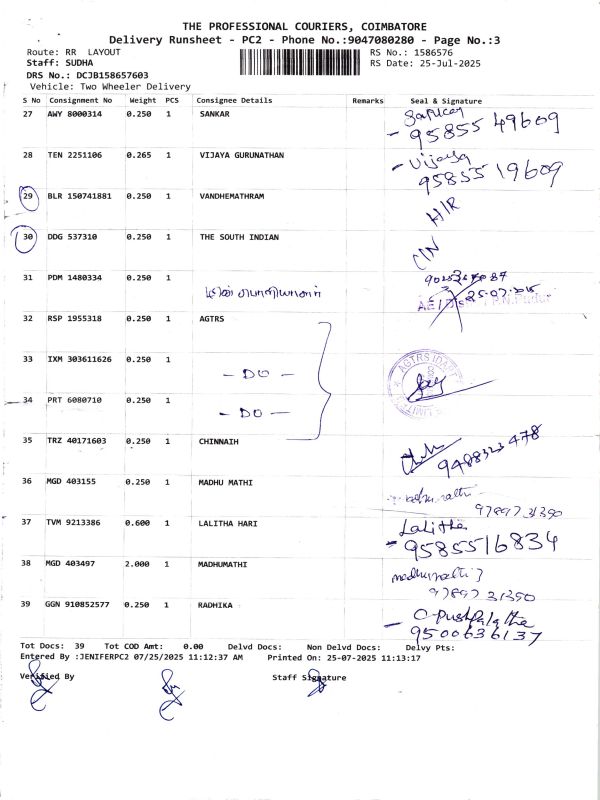 THE PROFESSIONAL COURIERS, COIMBATORE
Delivery Runsheet - PC2 - Phone No.:9047080280 - Page No.:3
Route: RR LAYOUT
RS No.: 1586576
Staff: SUDHA
RS Date: 25-Jul-2025
DRS No.: DCJB158657603
Vehicle: Two Wheeler Delivery
S No Consignment No Weight PCS Consignee Details Remarks Seal & Signature
27 AWY 8000314 0.250 1 SANKAR
- 95855 49609
28 TEN 2251106 0.265 1 VIJAYA GURUNATHAN - Vijaya
95855 19609
29 BLR 150741881 0.250 1 VANDHEMATHRAM H/R
30 DDG 537310 0.250 1 THE SOUTH INDIAN
31 PDM 1480334 0.250 1
25-07-2025
32 RSP 1955318 0.250 1 AGTRS
33 IXM 303611626 0.250 1
- DO -
34 PRT 6080710 0.250 1
- DO -
35 TRZ 40171603 0.250 1 CHINNAIH
9488323478
36 MGD 403155 0.250 1 MADHU MATHI
97897 31390
37 TVM 9213386 0.600 1 LALITHA HARI Lalitha
- 9585516834
38 MGD 403497 2.000 1 MADHUMATHI madhumathi
97897 31390
39 GGN 910852577 0.250 1 RADHIKA - C. Pushpalatha
9500636137
Tot Docs: 39 Tot COD Amt: 0.00 Delvd Docs: Non Delvd Docs: Delvy Pts:
Entered By :JENIFERPC2 07/25/2025 11:12:37 AM Printed On: 25-07-2025 11:13:17
Verified By Staff Signature